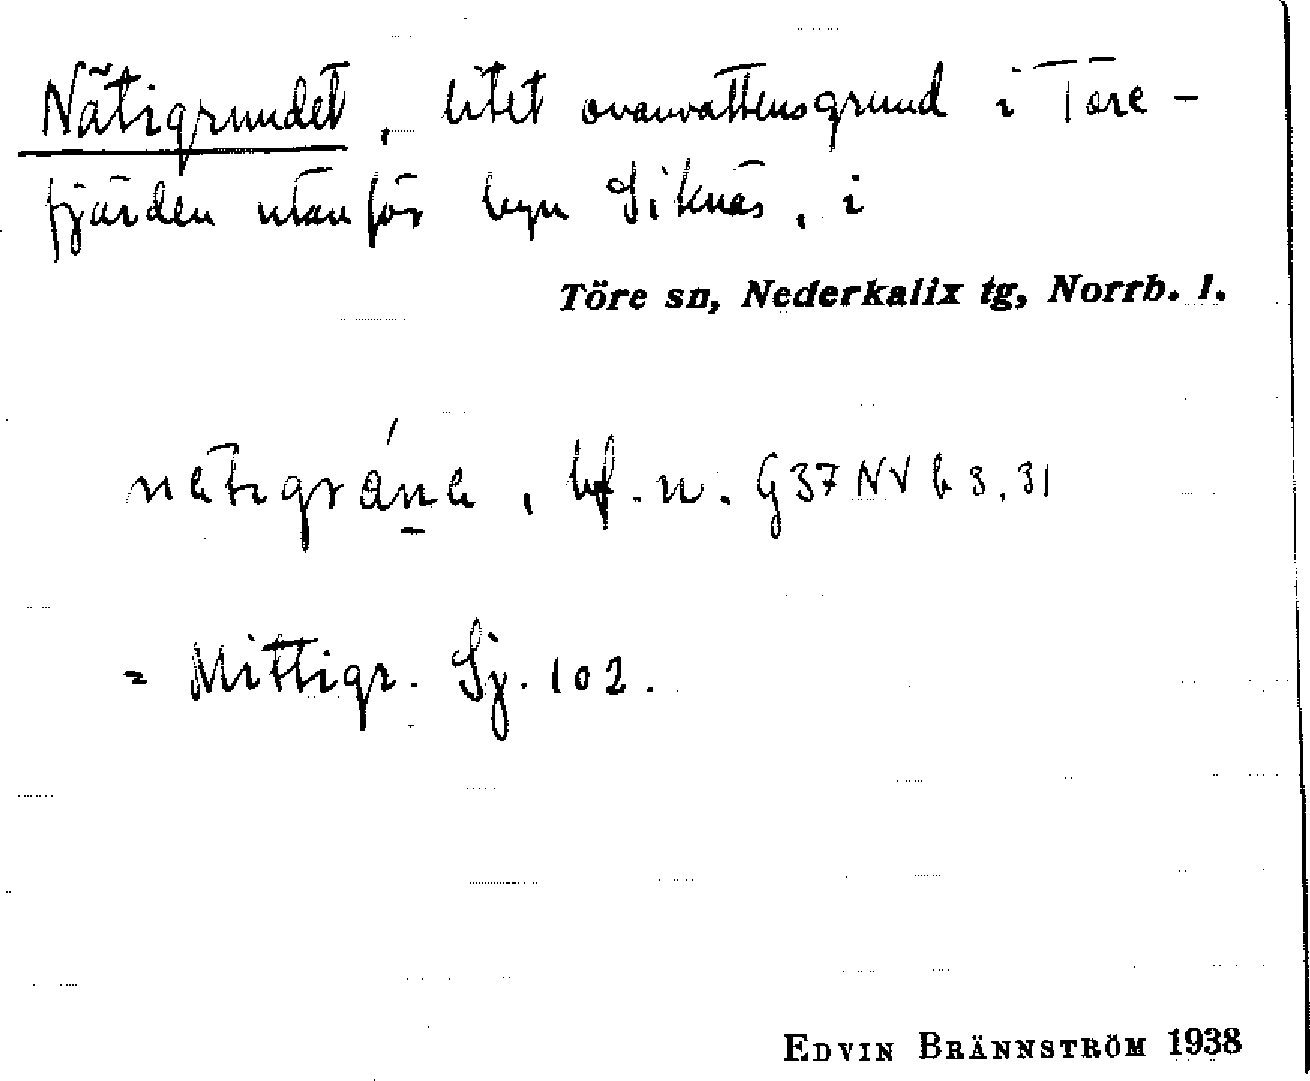 Nätigrundet, litet ovanvattensgrund i Töre-
fjärden utanför byn Siknäs, i
Töre sn, Nederkalix tg, Norrb. l.
bf. n. G37NV b 3,31
= Mittigr. Sj. 102.
EDVIN BRÄNNSTRÖM 1938